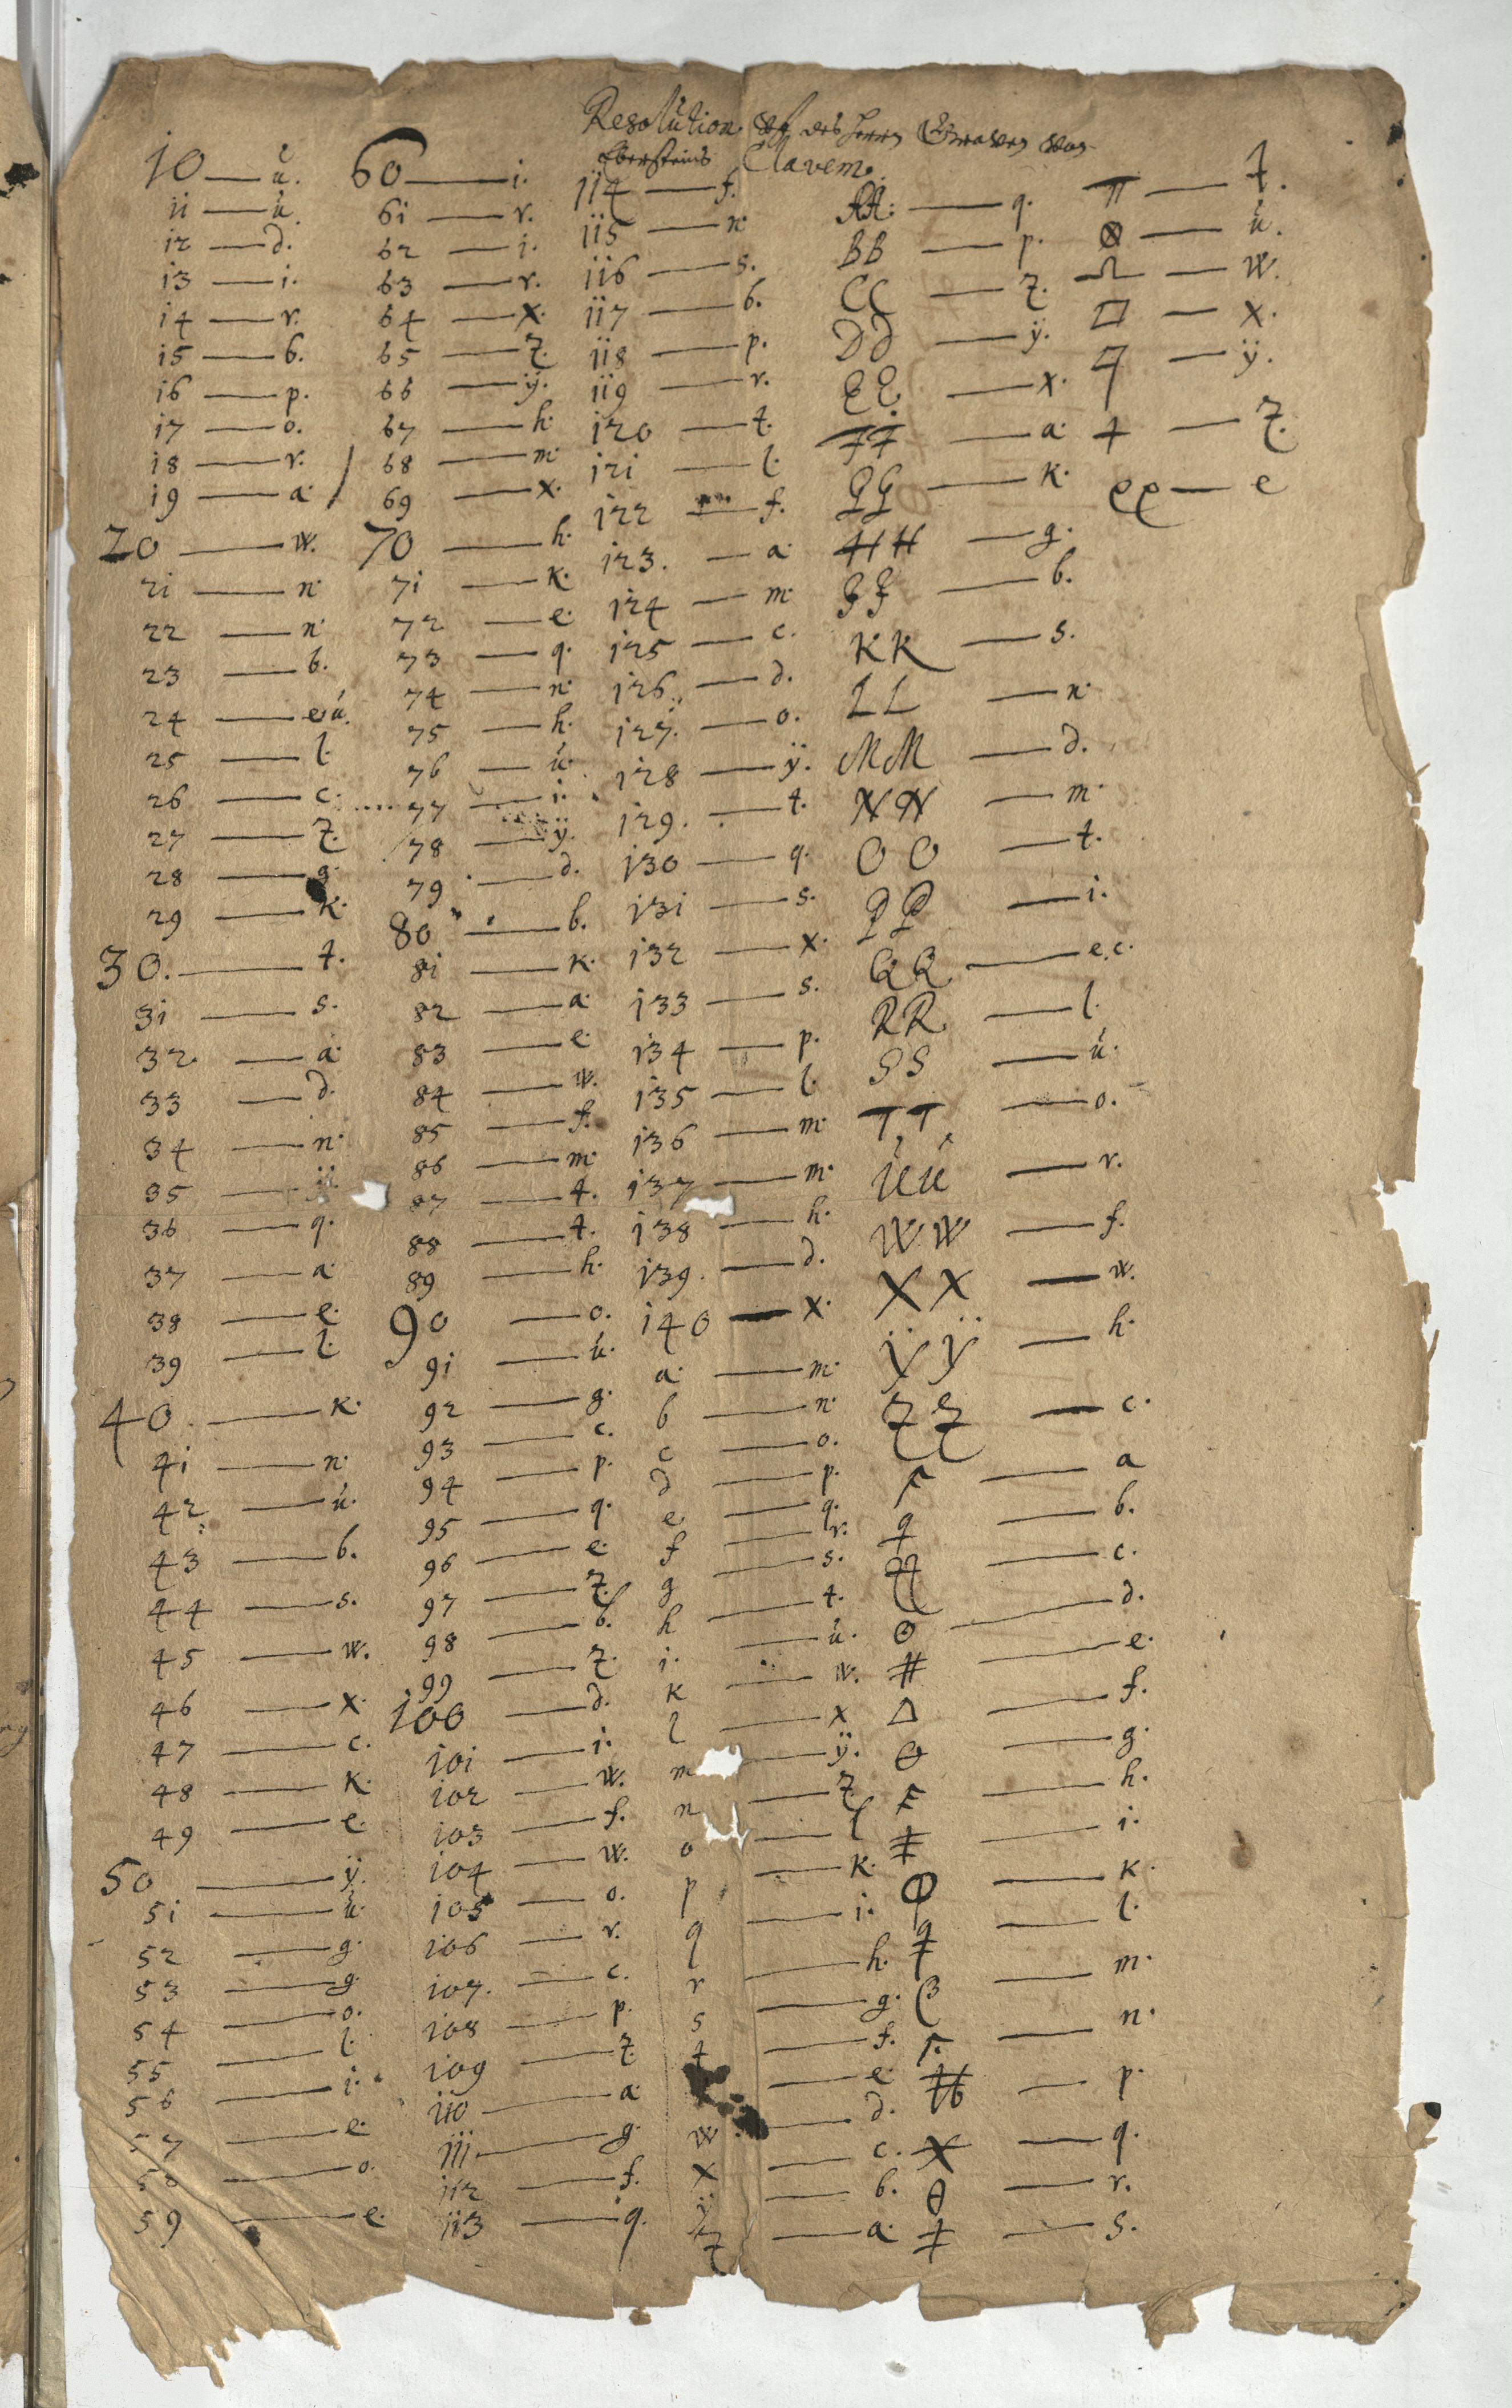 Resolution uf des Herrn Graven von
Ebersteins Clavem.
10 — ů.
11 — ů.
12 — d.
13 — i.
14 — r.
15 — b.
16 — p.
17 — o.
18 — r.
19 — a.
20 — w.
21 — n.
22 — n.
23 — b.
24 — eů.
25 — l.
26 — c.
27 — z.
28 — g.
29 — k.
30. — t.
31 — s.
32. — a.
33 — d.
34 — n.
35 —
36 — q.
37 — a.
38 — e.
39 — l.
40. — k.
41 — n.
42 — ů.
43 — b.
44 — s.
45 — w.
46 — x.
47 — c.
48 — k.
49 — e.
50 — ÿ.
51 — ů.
52 — g.
53 — g.
54 — o.
55 — l.
56 — i.
57 — e.
58 — o.
59 — e.
60 — i.
61 — r.
62 — i.
63 — r.
64 — x.
65 — z.
66 — ÿ.
67 — h.
68 — m.
69 — x.
70 — h.
71 — k.
72 — e.
73 — q.
74 — n.
75 — h.
76 — ů.
77 — i.
78 — ÿ.
79 — d.
80 — b.
81 — k.
82 — a.
83 — e.
84 — w.
85 — f.
86 — m.
87 — t.
88 — t.
89 — h.
90 — o.
91 — ů.
92 — g.
93 — c.
94 — p.
95 — q.
96 — e.
97 — z.
98 — b.
99 — z.
100 — d.
101 — i.
102 — w.
103 — f.
104 — w.
105 — o.
106 — r.
107. — c.
108 — p.
109 — z.
110 — a.
111 — g.
112 — f.
113 — q.
114 — f.
115 — n.
116 — s.
117 — b.
118 — p.
119 — r.
120 — t.
121 — l.
122 — f.
123. — a.
124 — m.
125 — c.
126 — d.
127. — o.
128 — ÿ.
129. — t.
130 — q.
131 — s.
132 — x.
133 — s.
134 — p.
135 — l.
136 — m.
137 — m.
138 — h.
139. — d.
140 — x.
a. — m.
b — n.
c — o.
d — p.
e — q.
f — r.
g — s.
h — t.
i. — ů.
k — w.
l — x
m — ÿ.
n — z.
o — l
p — k.
q — i.
r — h.
s — g.
t — f.
— e.
w — d.
x — c.
ÿ — b.
z — a.
AA. — q.
BB — p.
CC — z.
DD — ÿ.
EE — x.
FF — a.
GG — k.
HH — g.
JJ — b.
KK — s.
LL — n.
MM — d.
NN — m.
OO — t.
PP — i.
QQ. — e.c.
RR. — l.
SS — ů.
TT — o.
ůů — r.
WW — f.
XX — w.
ŸŸ — h.
ZZ — c.
— a
— b.
— c.
⊙ — d.
# — e.
Δ — f.
— g.
— h.
‡ — i.
— k.
— l.
— m.
— n.
— p.
— q.
θ — r.
‡ — s.
π — t.
— ů.
— w.
□ — x.
— ÿ.
— z.
ee — e